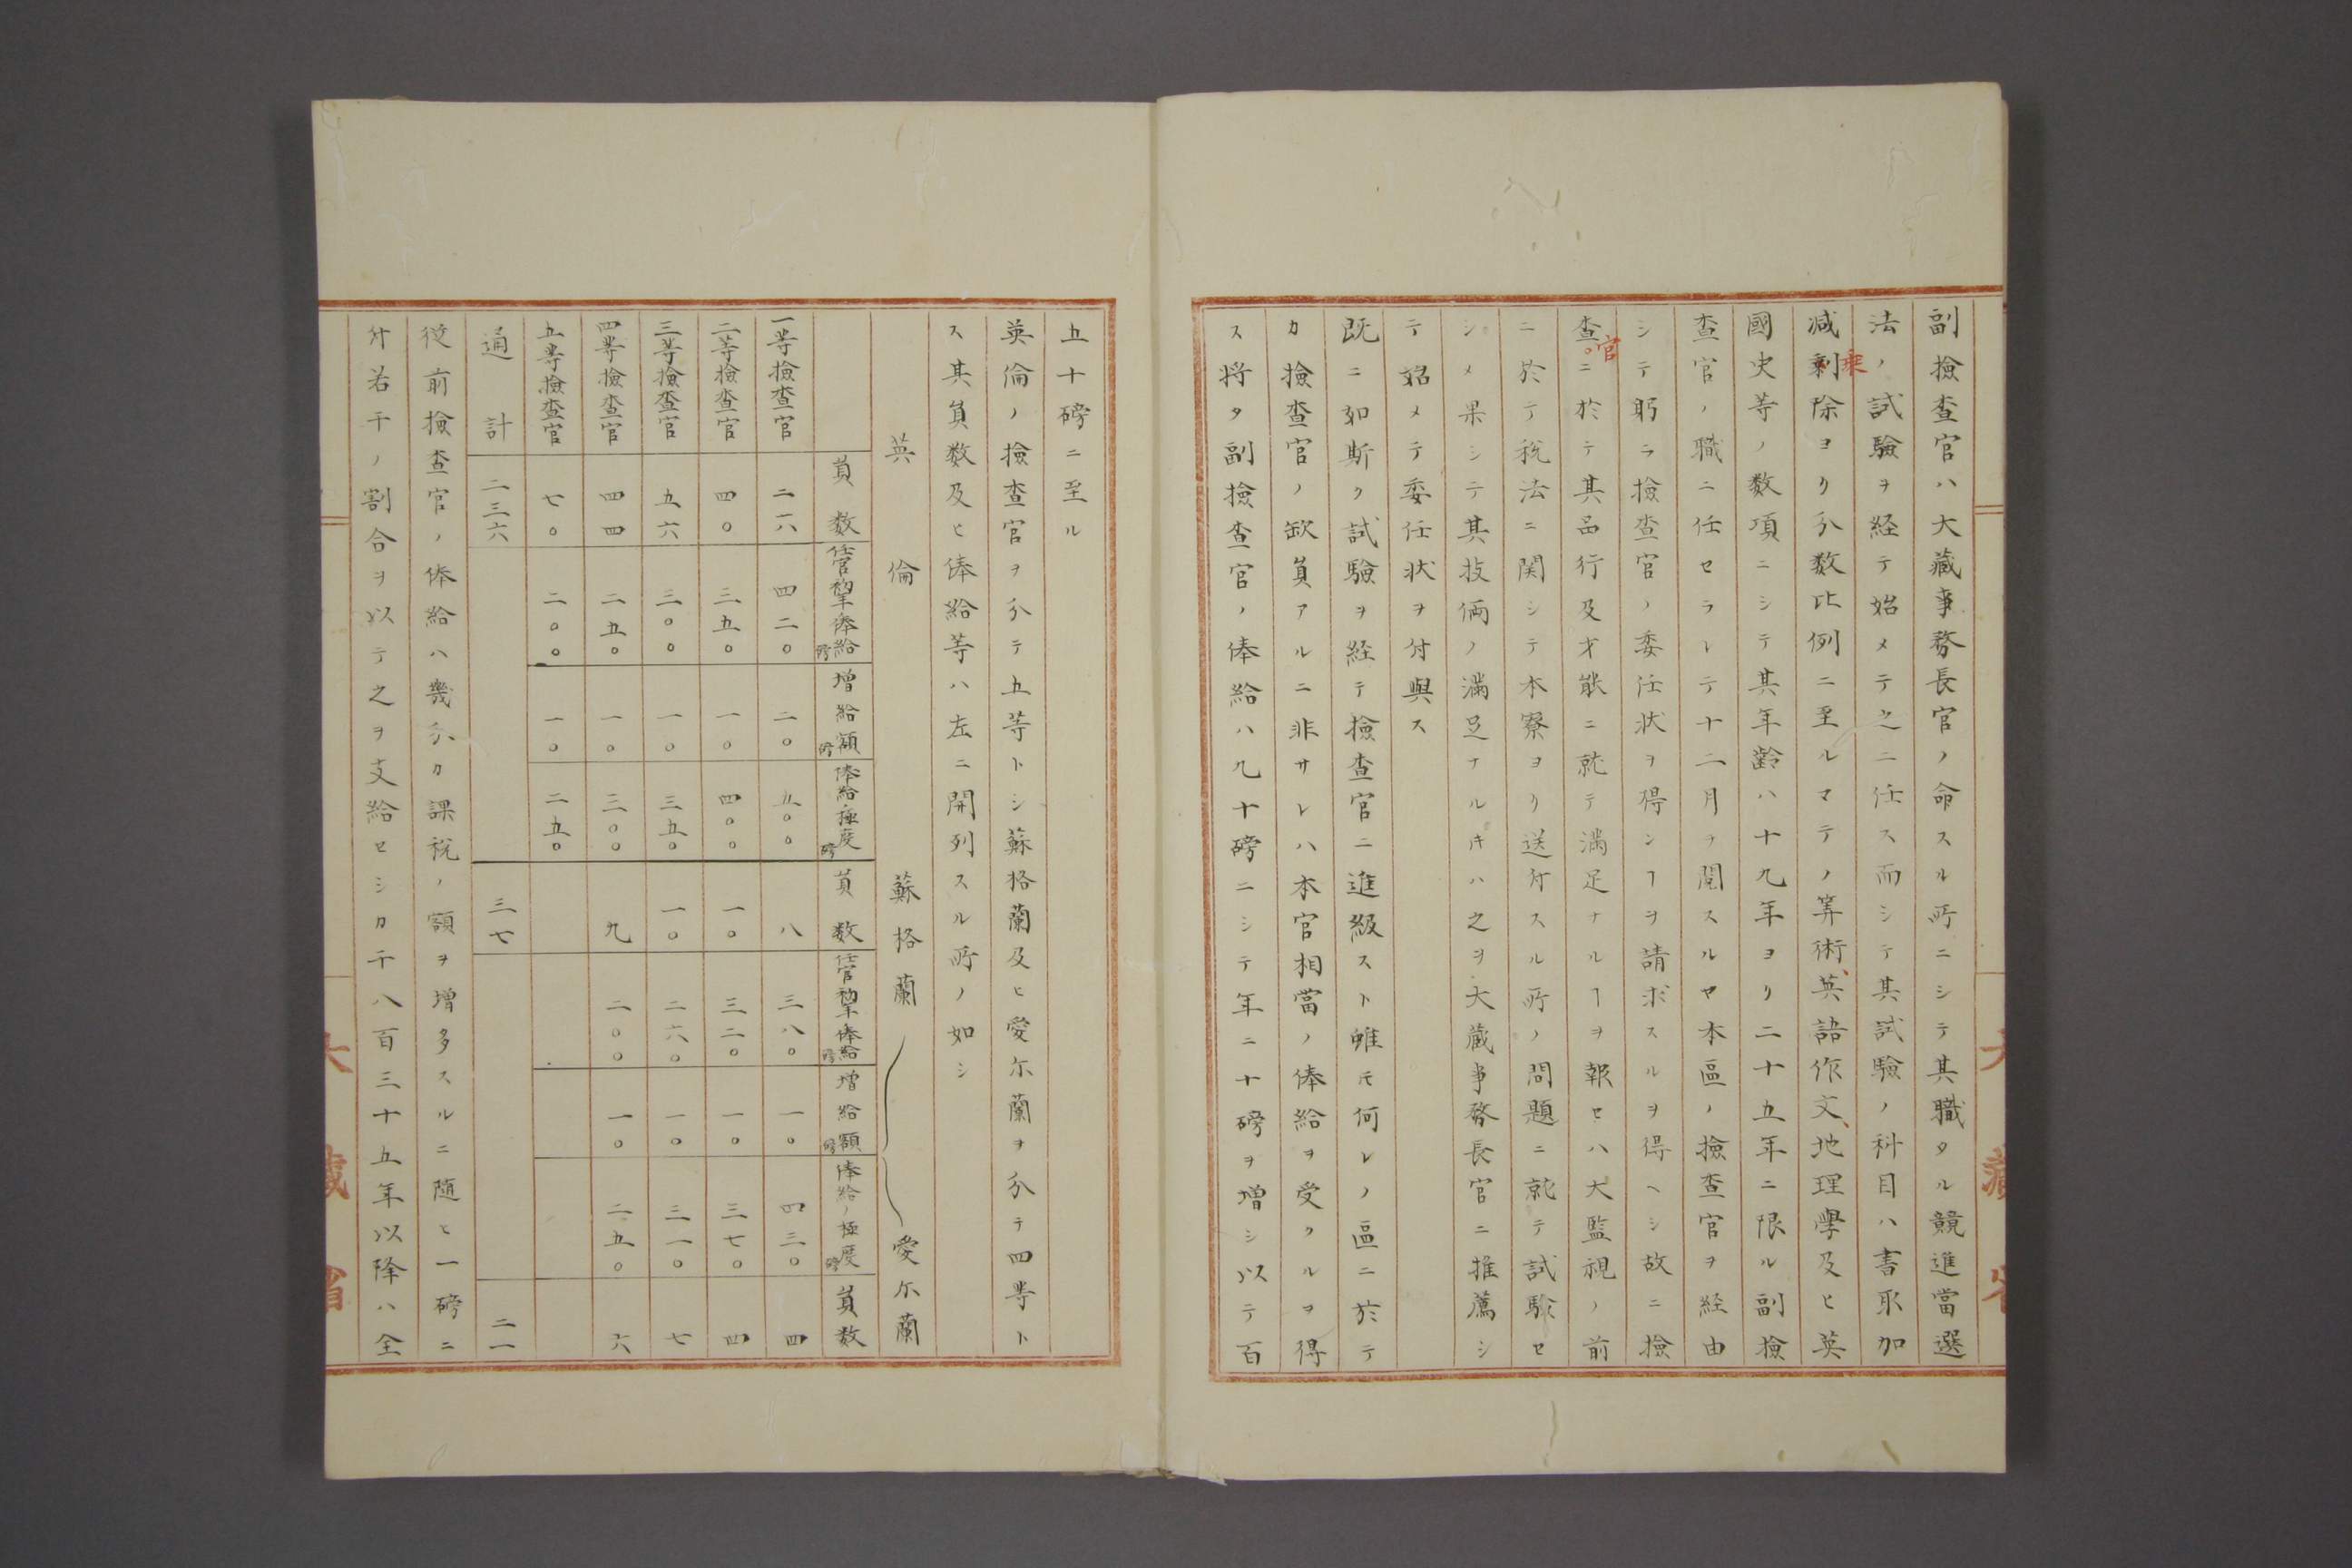 副檢查官ハ大藏事務長官ノ命スル所ニシテ其職タル競進當選
法ノ試驗ヲ経テ始メテ之ニ任ス而シテ其試驗ノ科目ハ書取加
減乗除ヨリ分数比例ニ至ルマテノ筭術、英語作文、地理學及ヒ英
國史等ノ数項ニシテ其年齡ハ十九年ヨリ二十五年ニ限ル副檢
查官ノ職ニ任セラレテ十二月ヲ閲スルヤ本區ノ檢查官ヲ経由
シテ躬ラ檢查官ノ委任状ヲ得ンヿヲ請求スルヲ得ヘシ故ニ檢
查官ニ於テ其品行及才能ニ就テ満足ナルヿヲ報セハ大監視ノ前
ニ於テ税法ニ関シテ本寮ヨリ送付スル所ノ問題ニ就テ試驗セ
シメ果シテ其技倆ノ満足ナルキハ之ヲ大藏事務長官ニ推薦シ
テ始メテ委任状ヲ付與ス
既ニ如斯ク試驗ヲ経テ檢查官ニ進級スト雖モ何レノ區ニ於テ
カ檢查官ノ缺員アルニ非サレハ本官相當ノ俸給ヲ受クルヲ得
ス将タ副檢查官ノ俸給ハ九十磅ニシテ年ニ十磅ヲ増シ以テ百
五十磅ニ至ル
英倫ノ檢查官ヲ分テ五等トシ蘇格蘭及ヒ愛尓蘭ヲ分テ四等ト
ス其員数及ヒ俸給等ハ左ニ開列スル所ノ如シ
英倫 蘇格蘭 愛尓蘭
員数 任官初年俸給磅 増給額磅 俸給極度磅 員数 任官初年俸給磅 増給額磅 俸給ノ極度磅 員数
一等檢查官 二六 四二〇 二〇 五〇〇 八 三八〇 一〇 四三〇 四
二等檢查官 四〇 三五〇 一〇 四〇〇 一〇 三二〇 一〇 三七〇 四
三等檢查官 五六 三〇〇 一〇 三五〇 一〇 二六〇 一〇 三一〇 七
四等檢查官 四四 二五〇 一〇 三〇〇 九 二〇〇 一〇 二五〇 六
五等檢查官 七〇 二〇〇 一〇 二五〇
通計 二三六 三七 二一
従前檢查官ノ俸給ハ幾分カ課税ノ額ヲ増多スルニ随ヒ一磅ニ
付若干ノ割合ヲ以テ之ヲ支給セシカ千八百三十五年以降ハ全
大藏省